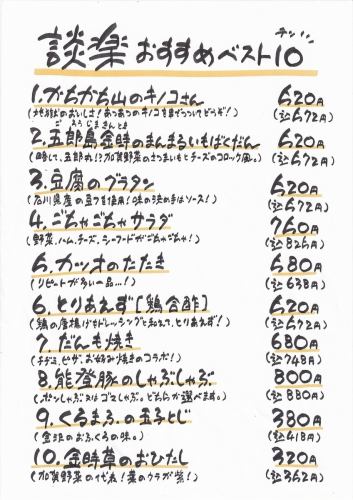 談楽 おすすめベスト10
1.かちかち山のキノコさん 620円
(税込672円)
ごろうじまきんとき
2.五郎島金時のまんまるいもばくだん 620円
(略して、五郎丸!?加賀野菜のさつまいもとチーズのコロッケ風。) (税込672円)
3.豆腐のグラタン 620円
(石川県産の豆フを使用!味の決め手はソース!) (税込672円)
4.ごちゃごちゃサラダ 760円
(野菜、ハム、チーズ、シーフードがごちゃごちゃ!) (税込826円)
5.カツオのたたき 580円
(リピートが多い一品…!) (税込638円)
6.とりあえず[鶏合酢] 620円
(鶏の唐揚げをドレッシングと和えて、とりあえず!) (税込672円)
7.だんも焼き 680円
(チヂミ、ピザ、お好み焼きのコラボ!) (税込748円)
8.能登豚のしゃぶしゃぶ 800円
(ポンしゃぶ又はゴマしゃぶ。どちらか選べます。) (税込880円)
9.くるまふの玉子とじ 380円
(金沢のおふくろの味。) (税込418円)
10.金時草のおひたし 320円
(加賀野菜の代表!葉のウラが紫!) (税込362円)